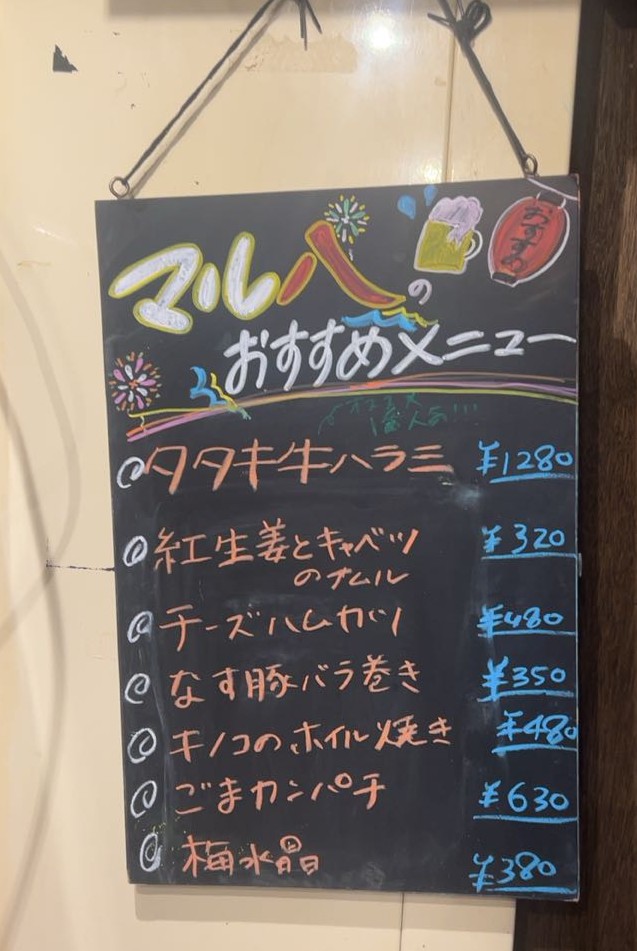 マル八の
おすすめ
おすすめメニュー
1番人気!!!
タタキ牛ハラミ ¥1280
紅生姜とキャベツ ¥320
のナムル
チーズハムカツ ¥480
なす豚バラ巻き ¥350
キノコのホイル焼き ¥480
ごまカンパチ ¥630
梅水晶 ¥380